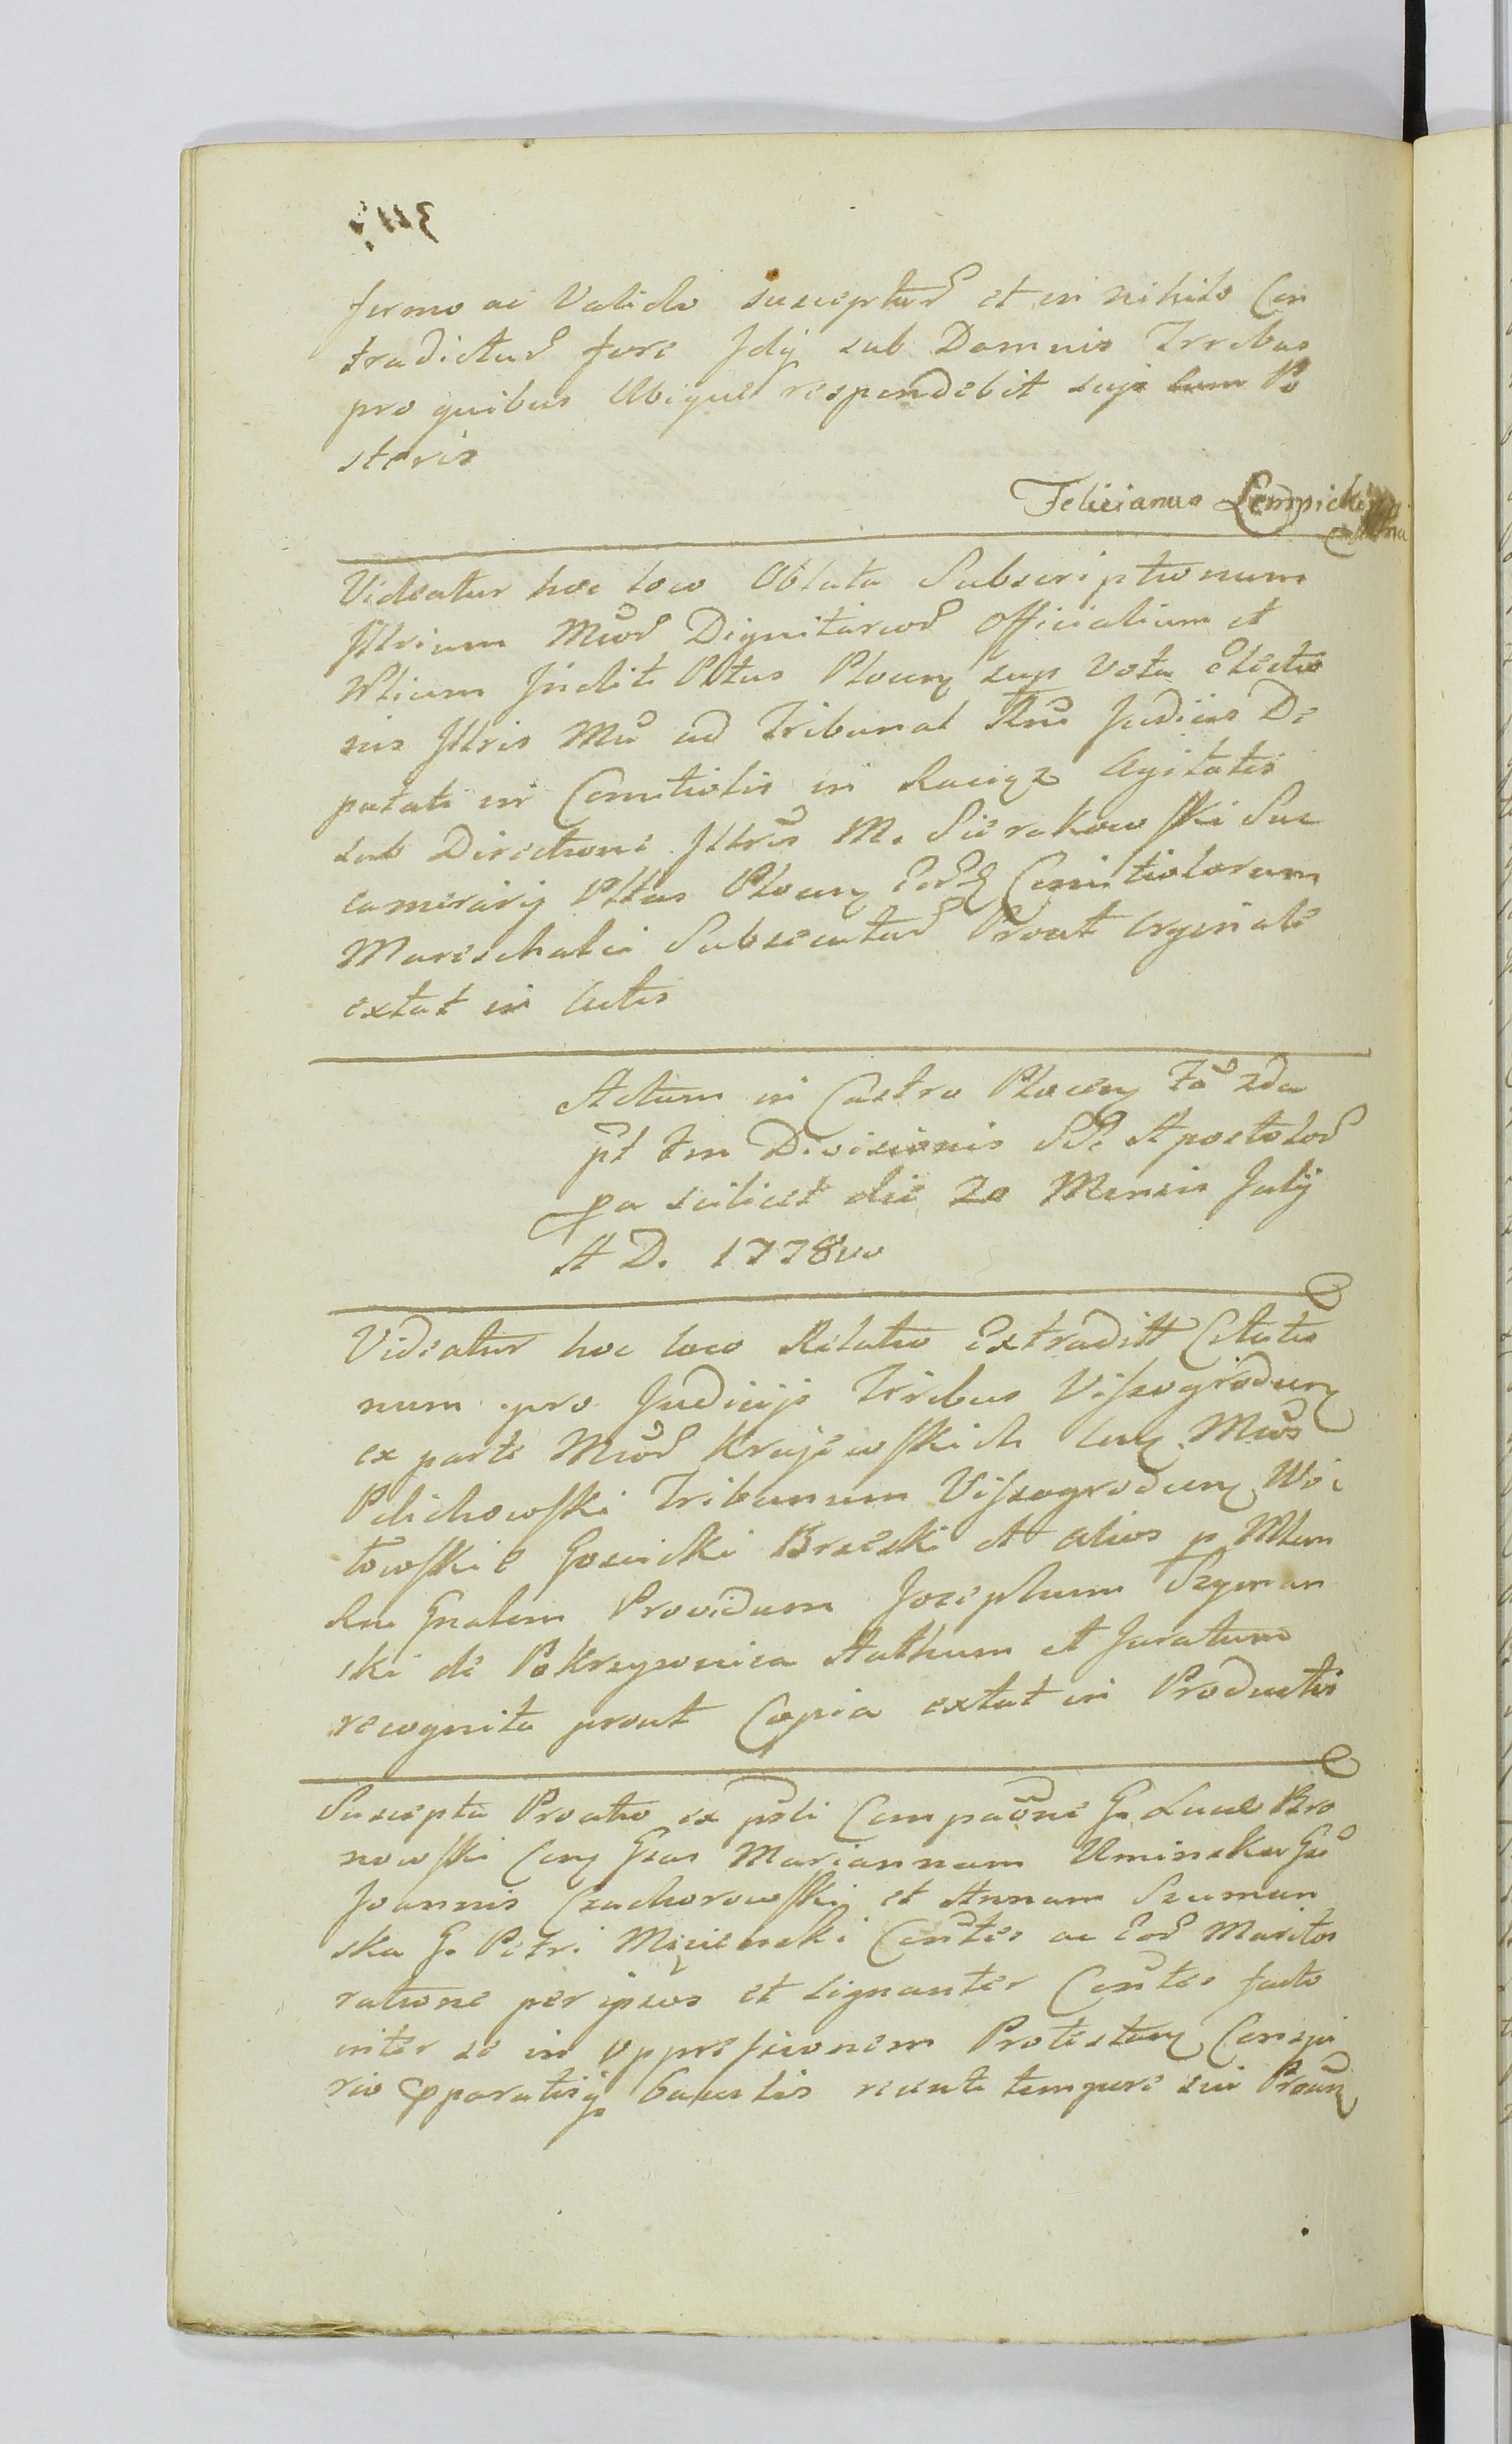 firmo ac Valido suscepturus et in nihilo Con
tradicturus fore Idq sub Damnis Trrebus
pro quibus Ubique respondebit suis cum Po
steris
Felicianus Lempicki
Videatur hoc loco Oblata Subscriptionum
Illrium Mcor Dignitareor Officialium et
Nlium Incliti Pltus Plocen sup Vota Electio
nis Illris Mci ad Tribunal Rni Judicis De
putati in Comitiolis in Raciąz Agitatis
sub Directione Illris M. Sierakowski Suc
camerarij Pltus Plocen Eordq Comitiolorum
Mareschalci Subsecutar Prout Orginale
extat in Actis
Actum in Castro Plocen Fa 2da
pt Fm Divisionis SS. Apostolor
pa scilicet die 20 Mensis July
A D. 1778vo
Videatur hoc loco Relatio Extradit Citatio
num pro Judicijs Trrebus Vissogroden
ex parte Mcor Krajewskich Con Mcos
Pilichowski Tribunum Vissogroden Woi
towskie Gosicki Brzeski et alios p Mlem
Rni Gnalem Providum Josephum Szyman
ski de Pokrzywnica Authum et Juratum
recognita prout Copia extat in Productis
Suscepta Proatio ex psli Compaone G. Lucae Bro
nowski Con Gsas Mariannam Uminska Gsi
Joannis Czachorowski et Annam Szuman
ska G. Petri Mięcienski Contes ac Eor Maritos
ratione per ipsos et signanter Contes facto
inter se in oppressionem Protestan Conspi
rio pparatisq baculis recenti tempore sui Proan